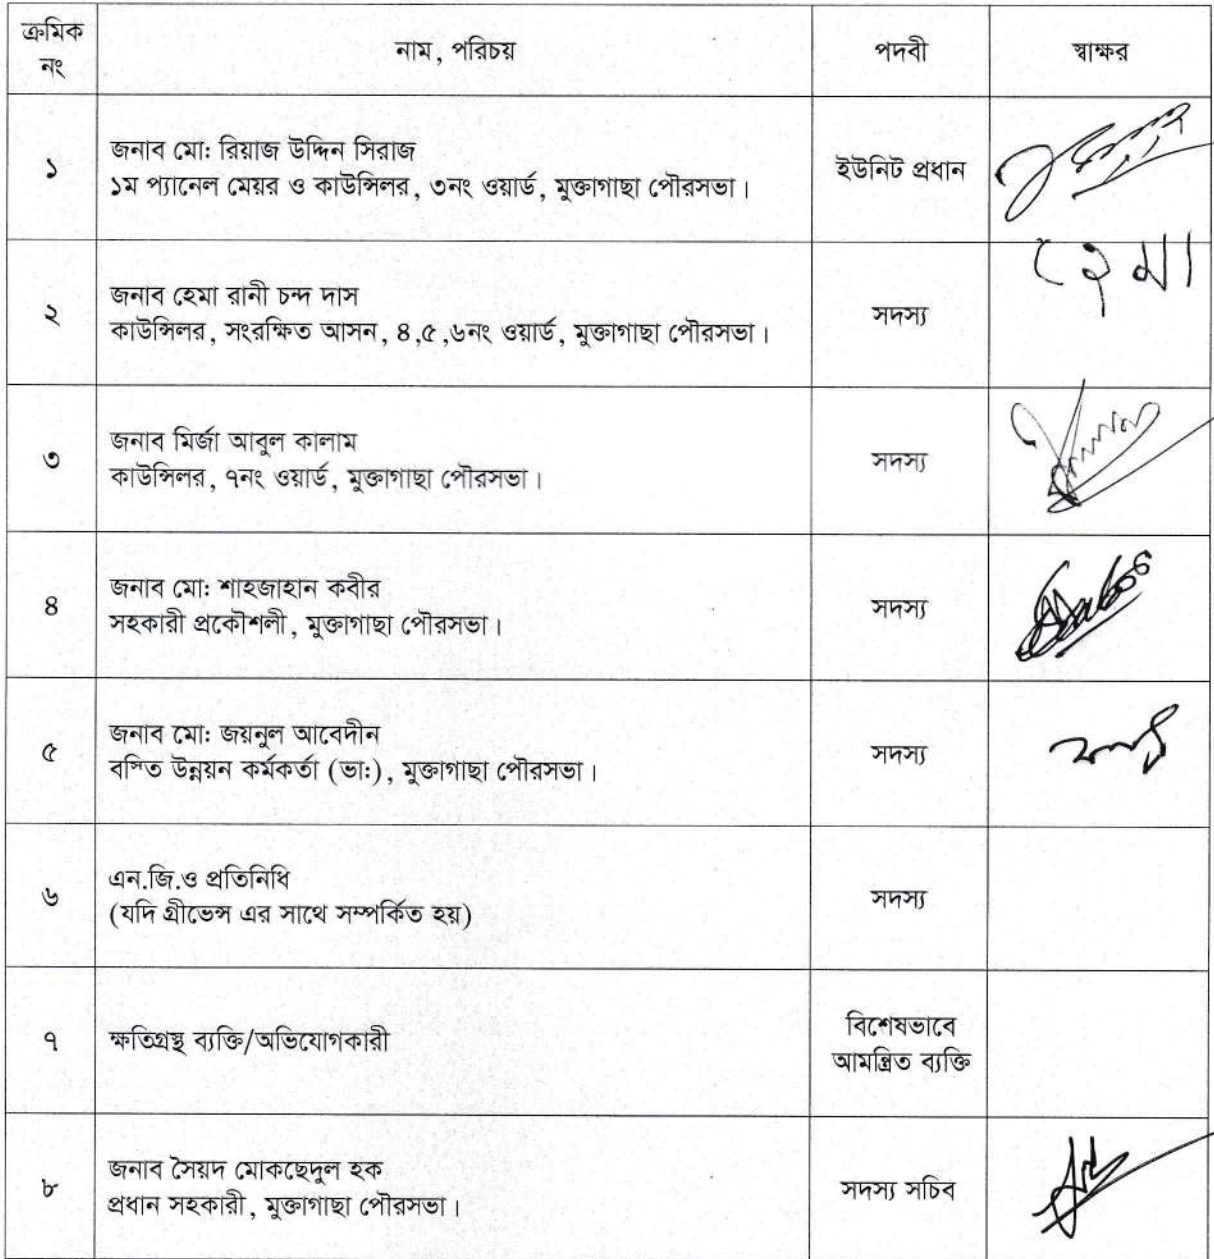 ক্রমিক
নং
নাম, পরিচয়
পদবী
স্বাক্ষর
১
জনাব মো: রিয়াজ উদ্দিন সিরাজ
১ম প্যানেল মেয়র ও কাউন্সিলর, ৩নং ওয়ার্ড, মুক্তাগাছা পৌরসভা।
ইউনিট প্রধান
২
জনাব হেমা রানী চন্দ দাস
কাউন্সিলর, সংরক্ষিত আসন, ৪,৫,৬নং ওয়ার্ড, মুক্তাগাছা পৌরসভা।
সদস্য
হেমা
৩
জনাব মির্জা আবুল কালাম
কাউন্সিলর, ৭নং ওয়ার্ড, মুক্তাগাছা পৌরসভা।
সদস্য
৪
জনাব মো: শাহজাহান কবীর
সহকারী প্রকৌশলী, মুক্তাগাছা পৌরসভা।
সদস্য
৫
জনাব মো: জয়নুল আবেদীন
বস্তি উন্নয়ন কর্মকর্তা (ভা:), মুক্তাগাছা পৌরসভা।
সদস্য
৬
এন.জি.ও প্রতিনিধি
(যদি গ্রীভেন্স এর সাথে সম্পর্কিত হয়)
সদস্য
৭
ক্ষতিগ্রস্থ ব্যক্তি/অভিযোগকারী
বিশেষভাবে
আমন্ত্রিত ব্যক্তি
৮
জনাব সৈয়দ মোকছেদুল হক
প্রধান সহকারী, মুক্তাগাছা পৌরসভা।
সদস্য সচিব